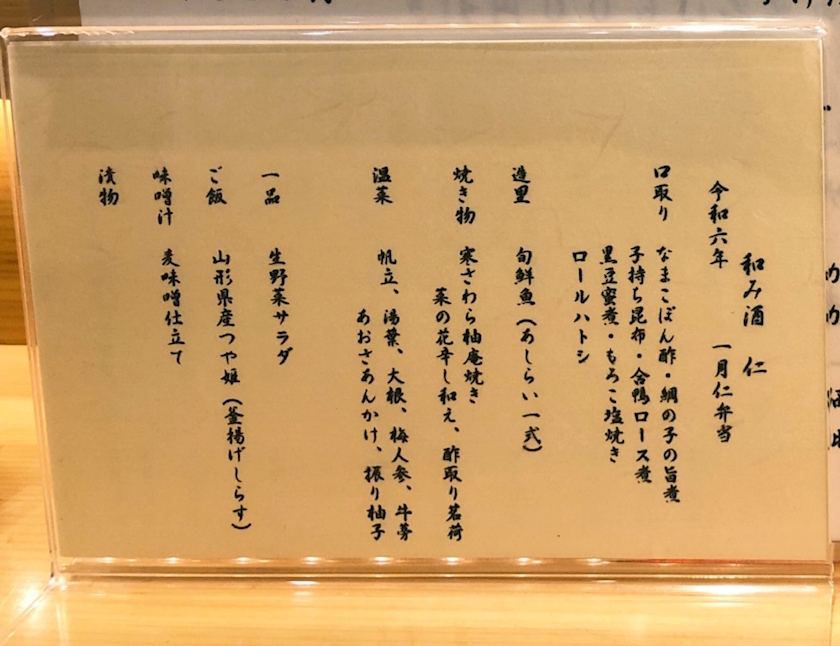 和み酒 仁
令和六年 一月仁弁当
口取り なまこぽん酢・鯛の子の旨煮
子持ち昆布・合鴨ロース煮
黒豆蜜煮・もろこ塩焼き
ロールハトシ
造里 旬鮮魚(あしらい一式)
焼き物 寒さわら柚庵焼き
菜の花辛し和え、酢取り茗荷
温菜 帆立、湯葉、大根、梅人参、牛蒡
あおさあんかけ、振り柚子
一品 生野菜サラダ
ご飯 山形県産つや姫(釜揚げしらす)
味噌汁 麦味噌仕立て
漬物